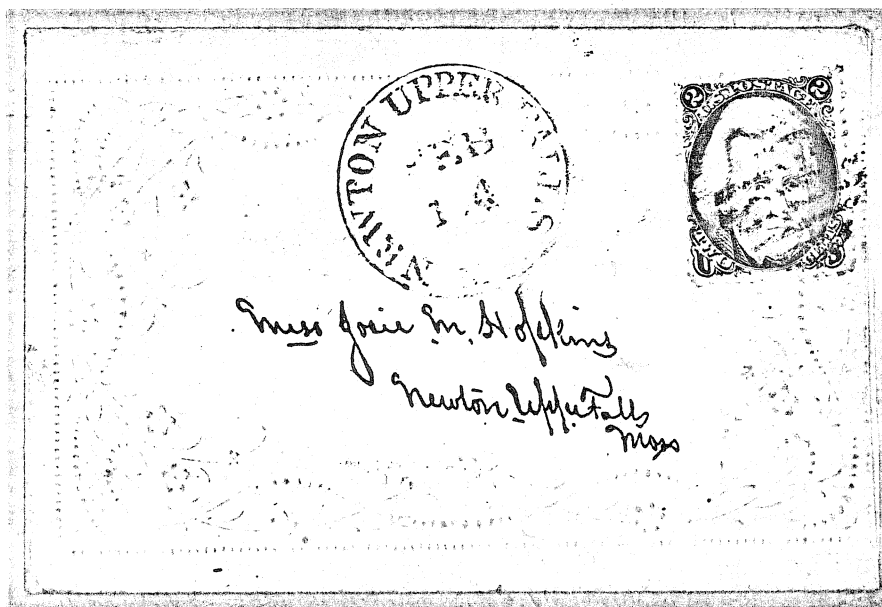 NEWTON UPPER FALLS
FEB
14
U.S. POSTAGE
2 2
U S
Miss Josie M. Hopkins
Newton Upper Falls
Mass